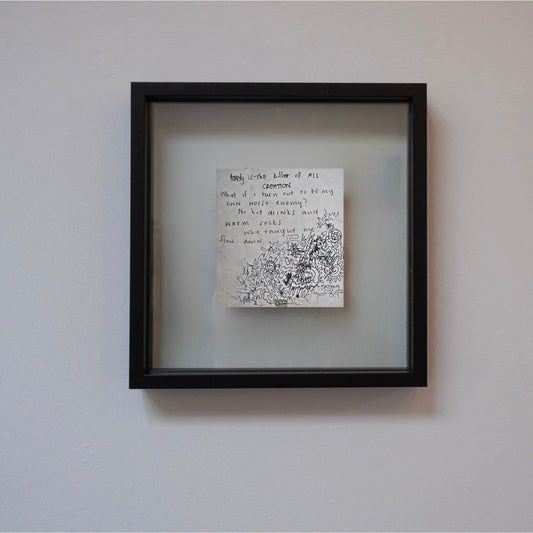 is the killer of ALL
CREATION
What if i turn out to be my
own worst enemy?
No hot drinks and
warm socks
who taught me
slow down